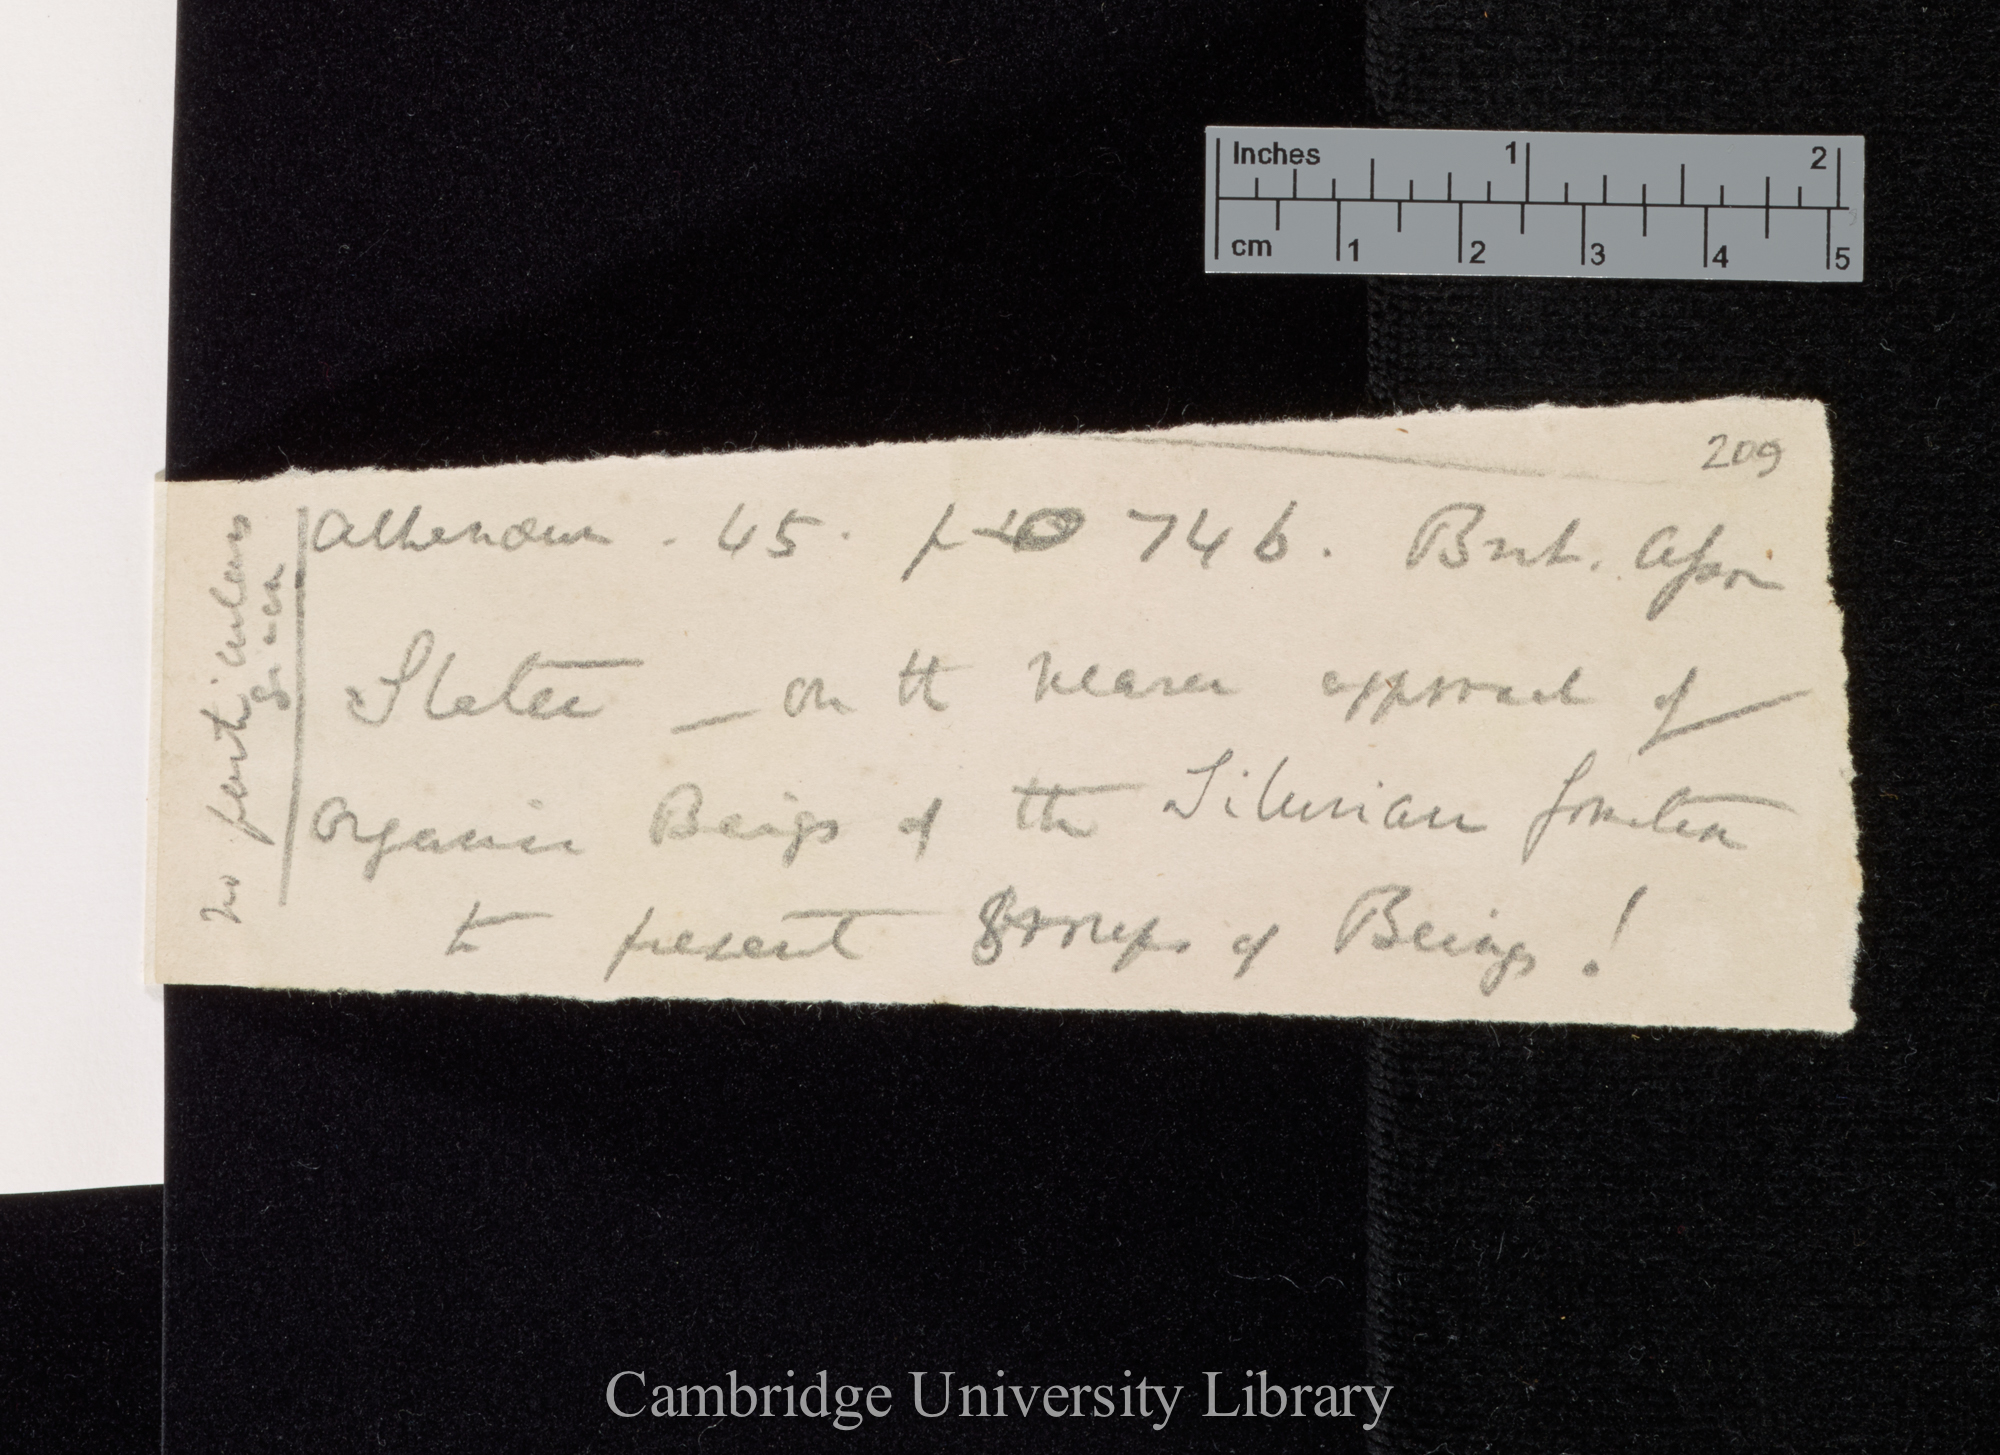 209
Athenæum . 45. p 746. Brit. Assoc
Slater — on the nearer approach of
organic Beings of the Silurian formation
to present Groups of Beings!
no particulars
given
Inches 1 2
cm 1 2 3 4 5
Cambridge University Library